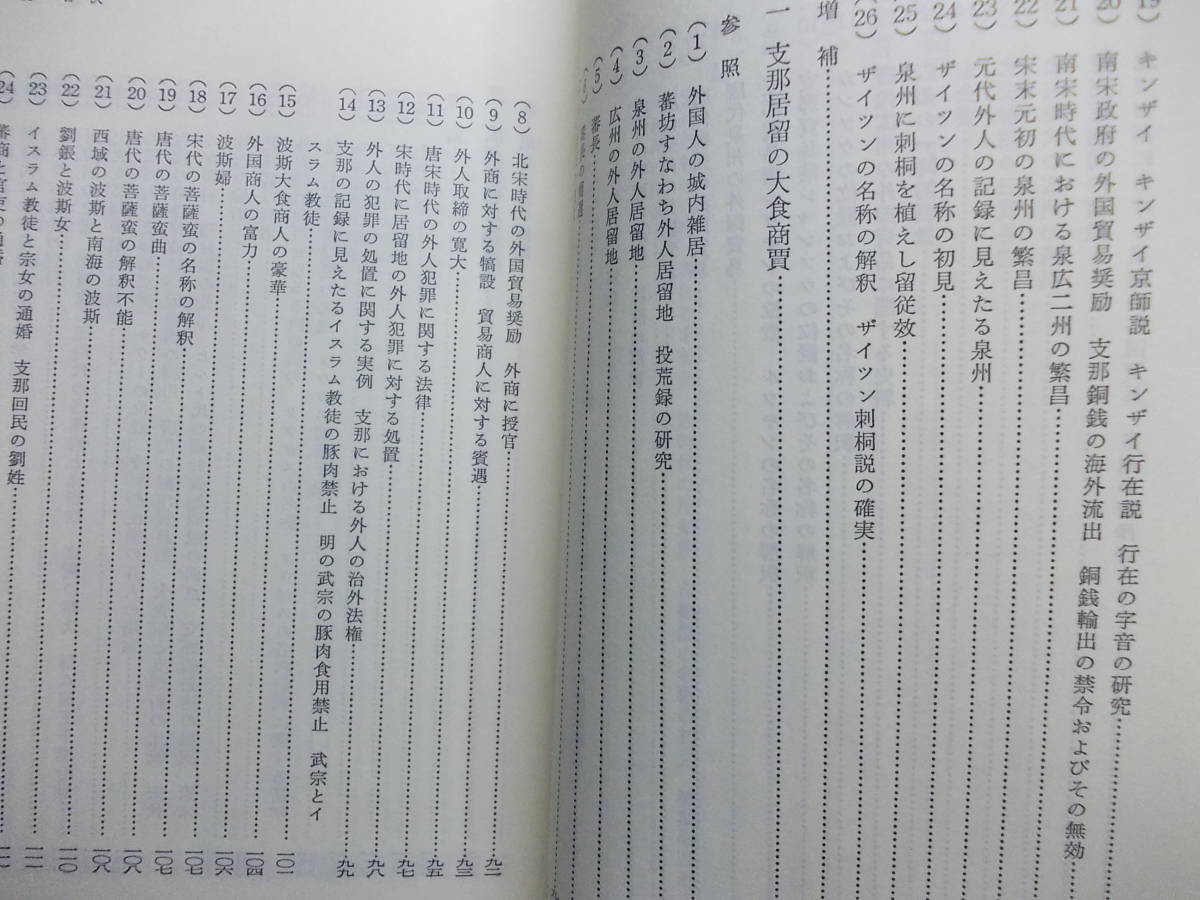 19) キンザイ キンザイ京師説 キンザイ行在説 行在の字音の研究
20) 南宋政府の外国貿易奨励 支那銅銭の海外流出 銅銭輸出の禁令およびその無効
21) 南宋時代における泉広二州の繁昌
22) 宋末元初の泉州の繁昌
23) 元代外人の記録に見えたる泉州
(24) ザイツンの名称の初見
(25) 泉州に刺桐を植えし留従效
(26) ザイツンの名称の解釈 ザイツン刺桐説の確実
増補
一 支那居留の大食商賈
参照
(1) 外国人の城内雑居
(2) 蕃坊すなわち外人居留地 投荒録の研究
(3) 泉州の外人居留地
(4) 広州の外人居留地
(5) 蕃長
(8) 北宋時代の外国貿易奨励 外商に授官 九二
(9) 外商に対する犒設 貿易商人に対する賓遇
(10) 外人取締の寛大 九三
(11) 唐宋時代の外人犯罪に関する法律 九五
(12) 宋時代に居留地の外人犯罪に対する処置 九七
(13) 外人の犯罪の処置に関する実例 支那における外人の治外法権 九八
(14) 支那の記録に見えたるイスラム教徒の豚肉禁止 明の武宗の豚肉食用禁止 武宗とイ
スラム教徒 九九
(15) 波斯大食商人の豪華 一〇二
(16) 外国商人の富力 一〇四
(17) 波斯婦 一〇六
(18) 宋代の菩薩蛮の名称の解釈 一〇七
(19) 唐代の菩薩蛮曲 一〇七
(20) 唐代の菩薩蛮の解釈不能 一〇八
(21) 西域の波斯と南海の波斯 一〇八
(22) 劉鋹と波斯女 一一〇
(23) イスラム教徒と宗女の通婚 支那回民の劉姓
(24)